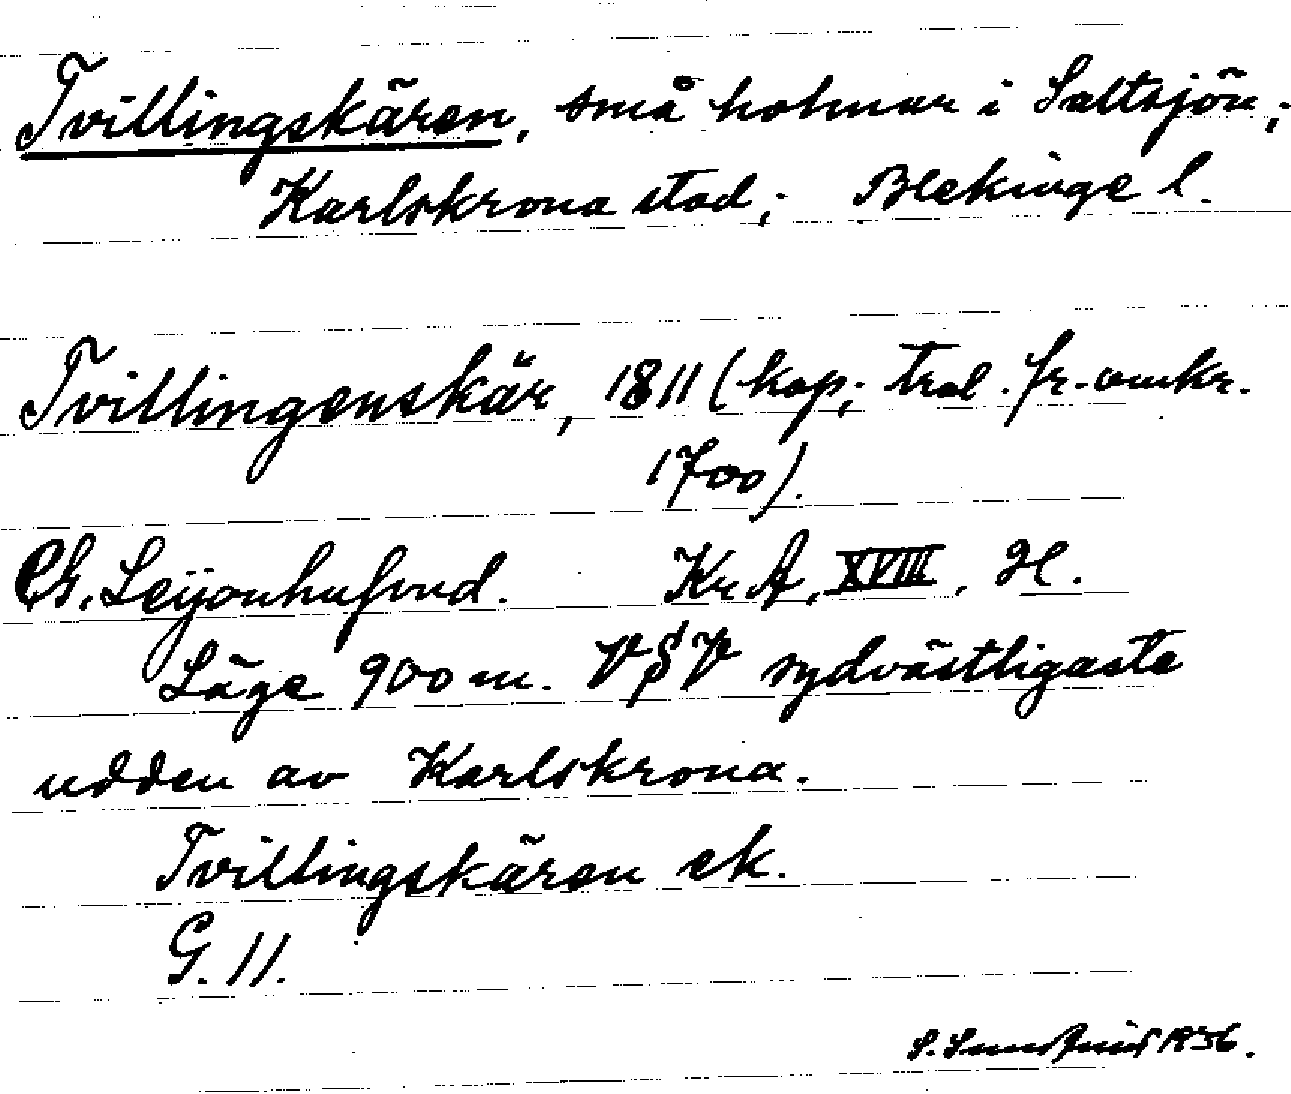 Tvillingskären, små holmar i Saltsjön;
Karlskrona stad; Blekinge l.
Tvillingenskär, 1811 (kop; trol. fr. omkr.
1700).
Ch. Leijonhufvud. Kr A, XVIII, H.
Läge 900 m. VSV sydvästligaste
udden av Karlskrona.
Tvillingskären ek.
G. 11.
S. 1936.